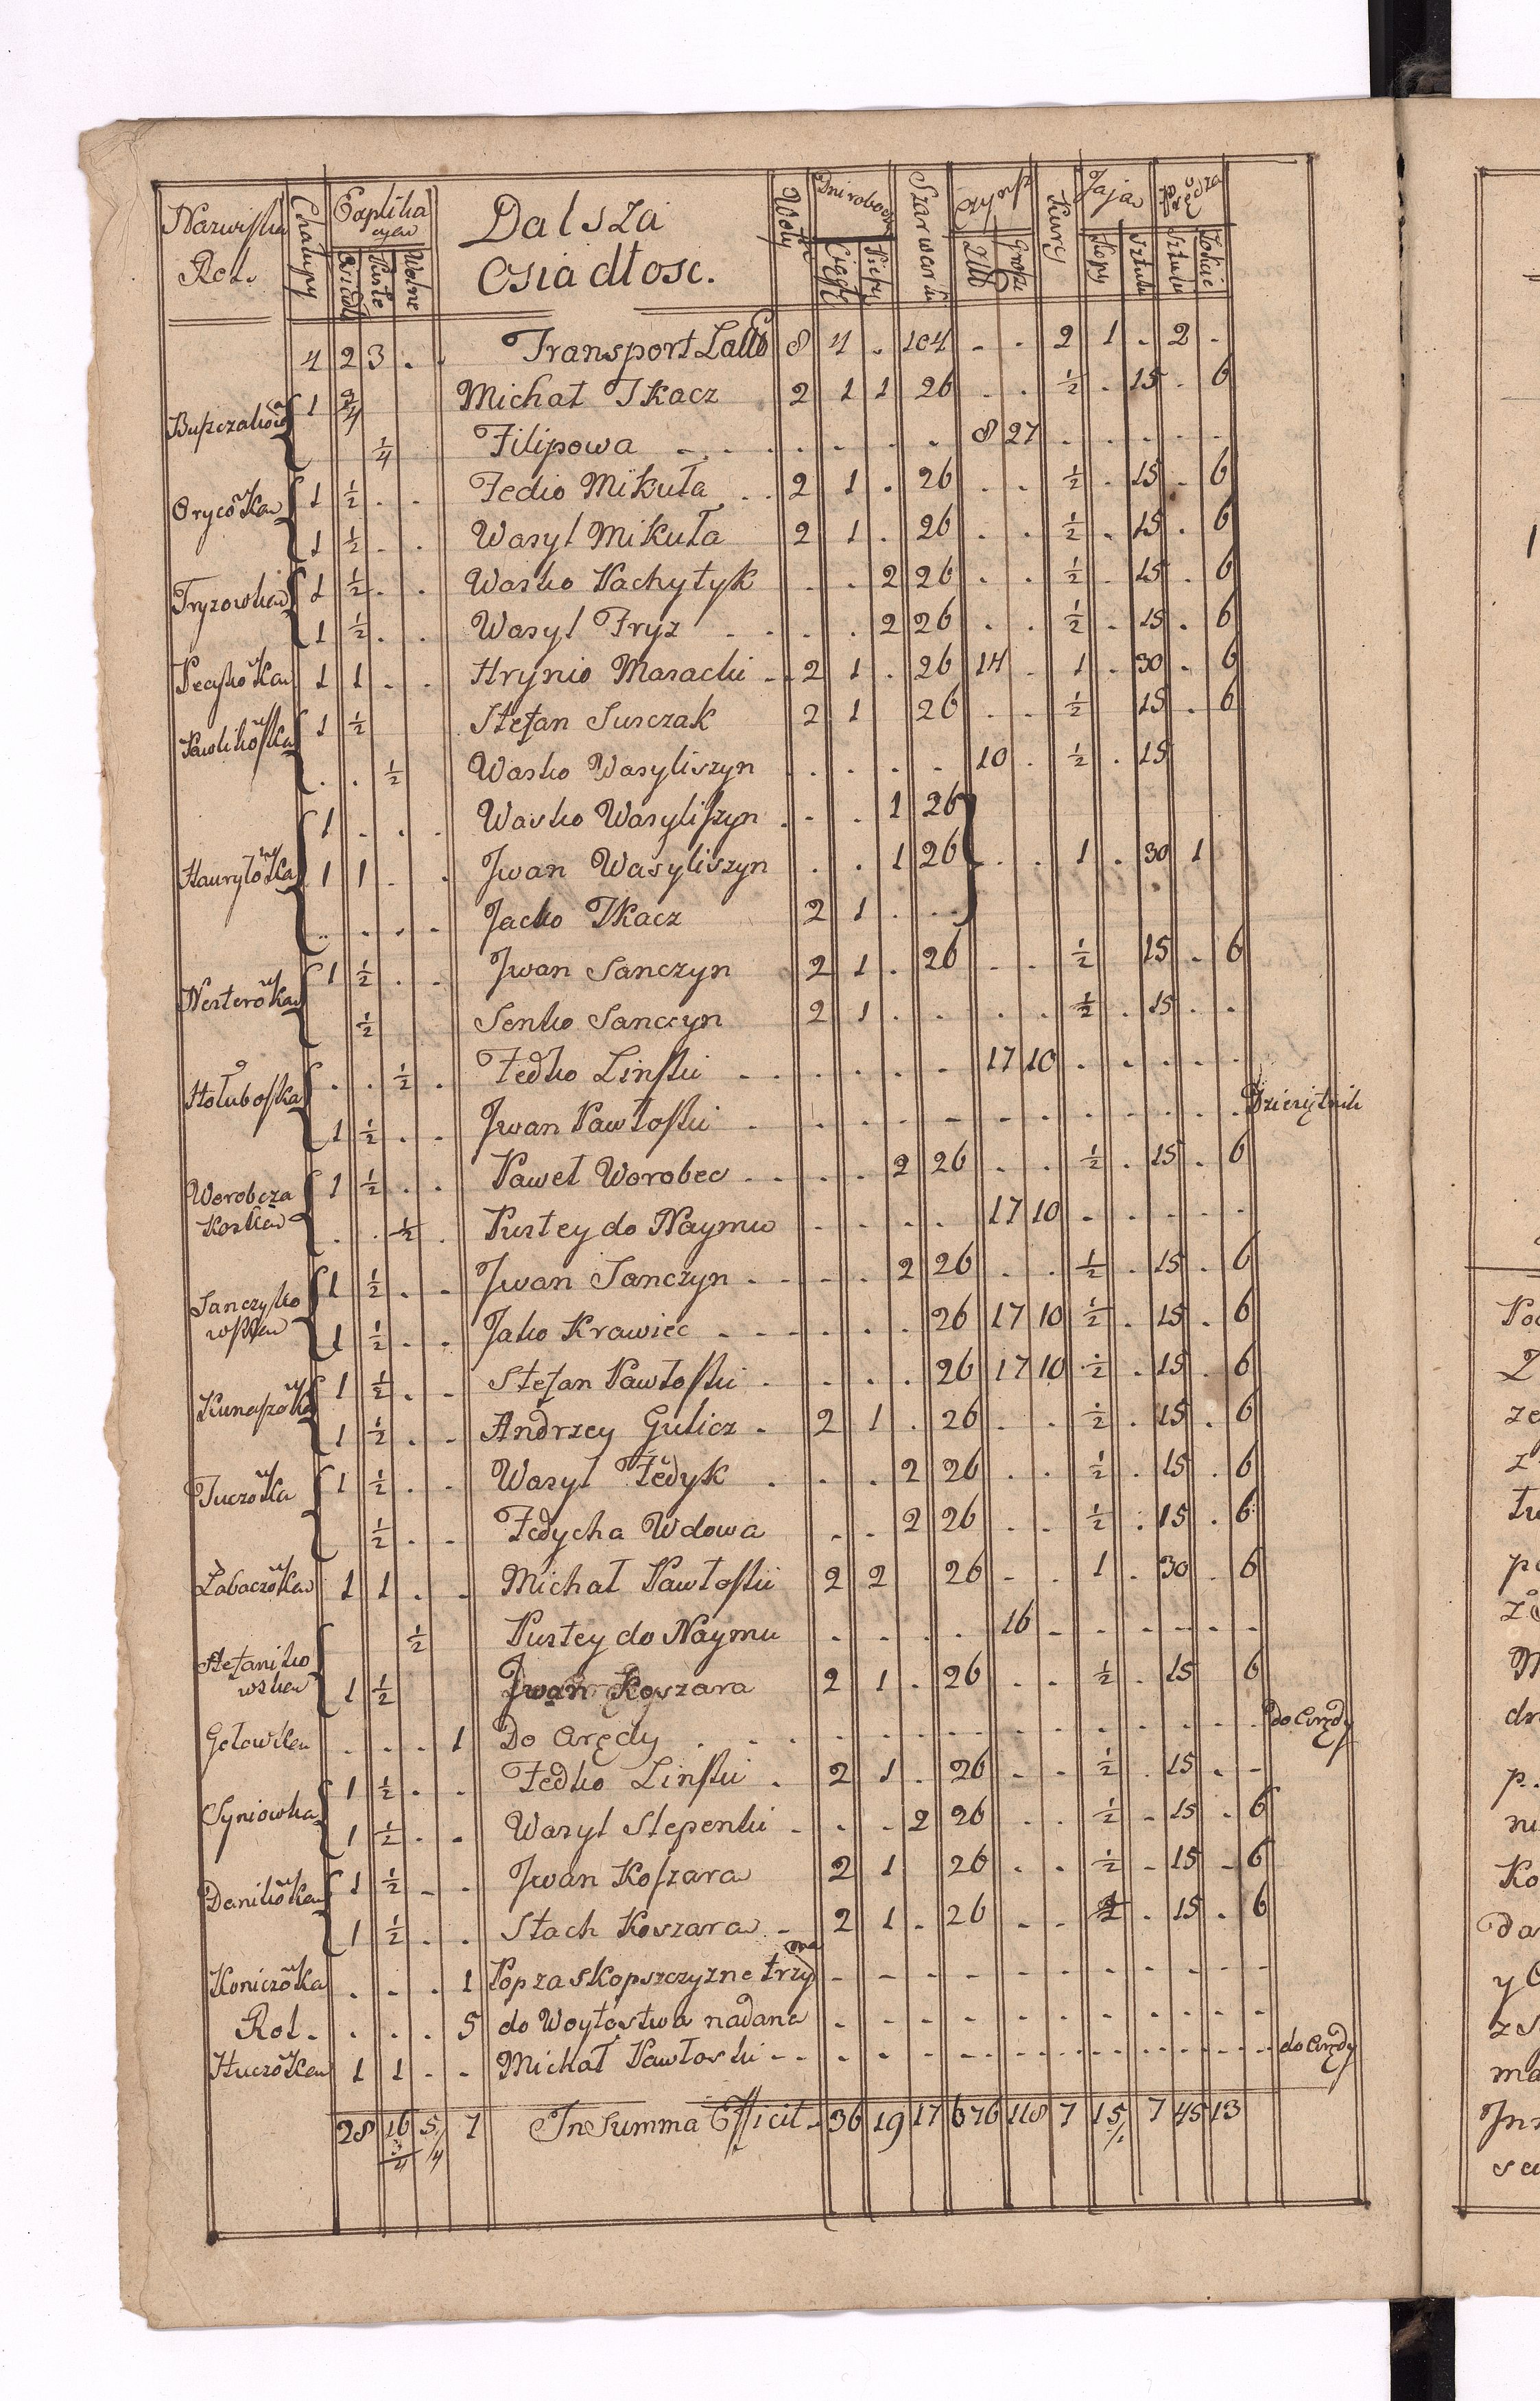 Nazwiska Rol. Chałupy Explikacya Osiadłe Puste Wolne Dalsza Osiadłosc. Woły Dni robocze Ciągłe Piechy Szarwarki Czynsz Złł Grosze Kury Jaja Kopy Sztuki Przędza Sztuki Łokcie
4 2 3 . . Transport Latus 8 4 . 104 - . 2 1 . 2 .
Buszczakow 1 3/4 Michał Tkacz 2 1 1 26 . . ½ . 15 . 6
¼ Filipowa - . . . . . . . 8 27 . . . . .
Orycowka 1 ½ . . Fedio Mikuła . . 2 1 . 26 . . ½ . 15 . 6
1 ½ . . Wasyl Mikuła 2 1 . 26 . . ½ . 15 . 6
Fryzowka 1 ½ . . Wasko Pachytyk . . 2 26 . . ½ . 15 . 6
1 ½ . . Wasyl Fryz . . . . 2 26 . . ½ . 15 . 6
Peckowka 1 1 . . Hrynio Masacki . 2 1 . 26 14 . 1 . 30 . 6
Pawlikowska 1 ½ Stefan Susczak 2 1 26 . . ½ 15 . 6
. . ½ Wasko Wasyliszyn . . . . 10 . ½ . 15
1 . . . Wasko Wasyliszyn . . . 1 26
Hauryłowka 1 1 . . Jwan Wasyliszyn . . 1 26 . . 1 . 30 1
. . . . Jacko Tkacz 2 1 . . .
Nesterowka 1 ½ . . Jwan Sanczyn 2 1 . 26 . . ½ 15 . 6
½ Senko Sanczyn 2 1 . . . . ½ . 15 . .
Hołubowska . . ½ . Fedko Linski . . . . . . 17 10 . . . . .
1 ½ . . Jwan Pawłoski . . . . . . . . . . . . Dziesiętnik
Worobcza 1 ½ . . Paweł Worobec . . . . 2 26 . . ½ . 15 . 6
koska . . ½ . Pustey do Naymu . . . . 17 10 . . . . .
Sanczyko 1 ½ . . Jwan Sanczyn . . . . 2 26 . . ½ . 15 . 6
wska 1 ½ . . Jako Krawiec . . . . . . 26 17 10 ½ . 15 . 6
Kunaszowka 1 ½ . . Stefan Pawłoski . . . . 26 17 10 ½ . 15 . 6
1 ½ . . Andrzey Gulicz . 2 1 . 26 . . ½ . 15 . 6
Tuczowka 1 ½ . . Wasyl Fedyk . . . 2 26 . . ½ . 15 . 6
½ . . Fedycha Wdowa . . 2 26 . . ½ . 15 . 6
Zabaczowka 1 1 . . Michał Pawłoski 2 2 26 . . 1 . 30 . 6
Stefaniko ½ Pustey do Naymu . . . . 16 . . . . . .
wska 1 ½ Jwan Koszara 2 1 . 26 . . ½ . 15 6
Gołowka . . . 1 Do Arędy . . . . . . . . . . . . . do Arędy
Syniowka 1 ½ . . Fedko Linski . 2 1 . 26 . . ½ . 15 . .
1 ½ . . Wasyl Stepenki . . . 2 26 . . ½ . 15 . 6
Danikowka 1 ½ . . Jwan Koszara 2 1 26 . . ½ . 15 . 6
1 ½ . . Stach Koszara . 2 1 . 26 . . ½ . 15 . 6
Koniczowka . . . 1 Pop za skopszczyzne trzyma . . . . . . . . . . .
Rol . . . . 5 do Woytostwa nadane . . . . . . . . . . .
Huczowka 1 1 . . Michał Pawłoski . . . . . . . . . . . . . do Arędy
28 16 3/4 5/4 7 In Summa Efficit 36 19 17 676 118 7 15/. 7 45 13